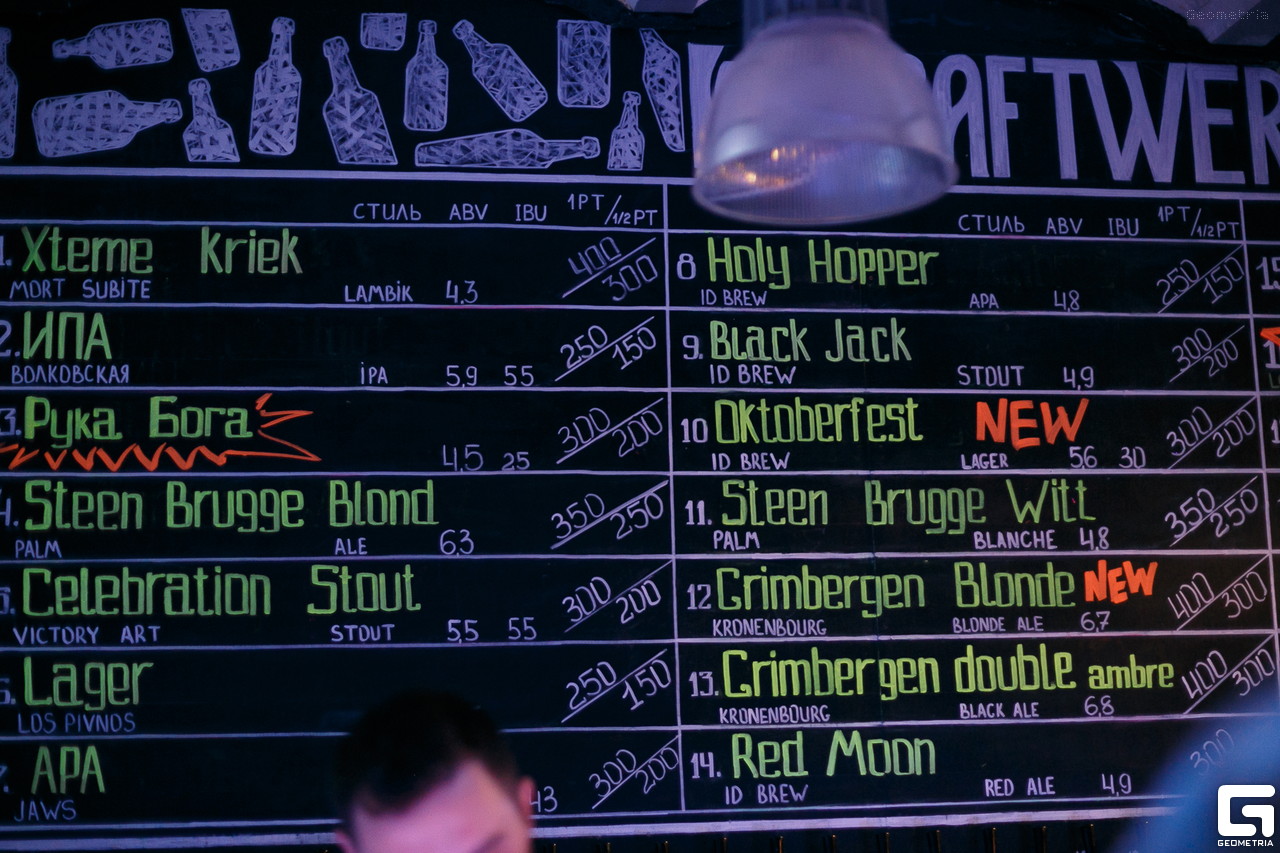 Geometria
AFTWER
СТИЛЬ ABV IBU 1PT/1/2PT
1. Xteme Kriek 400/300
MORT SUBITE LAMBIK 4.3
2. ИПА 250/150
ВОЛКОВСКАЯ IPA 5,9 55
3. Рука Бога 300/200
4,5 25
4. Steen Brugge Blond 350/250
PALM ALE 6,3
5. Celebration Stout 300/200
VICTORY ART STOUT 5,5 55
6. Lager 250/150
LOS PIVNOS
7. APA 300/200
JAWS 43
СТИЛЬ ABV IBU 1PT/1/2PT
8 Holy Hopper 250/150
ID BREW APA 4,8
9. Black Jack 300/200
ID BREW STOUT 4,9
10 Oktoberfest NEW 300/200
ID BREW LAGER 5,6 30
11. Steen Brugge Witt 350/250
PALM BLANCHE 4,8
12 Grimbergen Blonde NEW 400/300
KRONENBOURG BLONDE ALE 6,7
13. Grimbergen double ambre 400/300
KRONENBOURG BLACK ALE 6,8
14. Red Moon 300
ID BREW RED ALE 4,9
15
GEOMETRIA